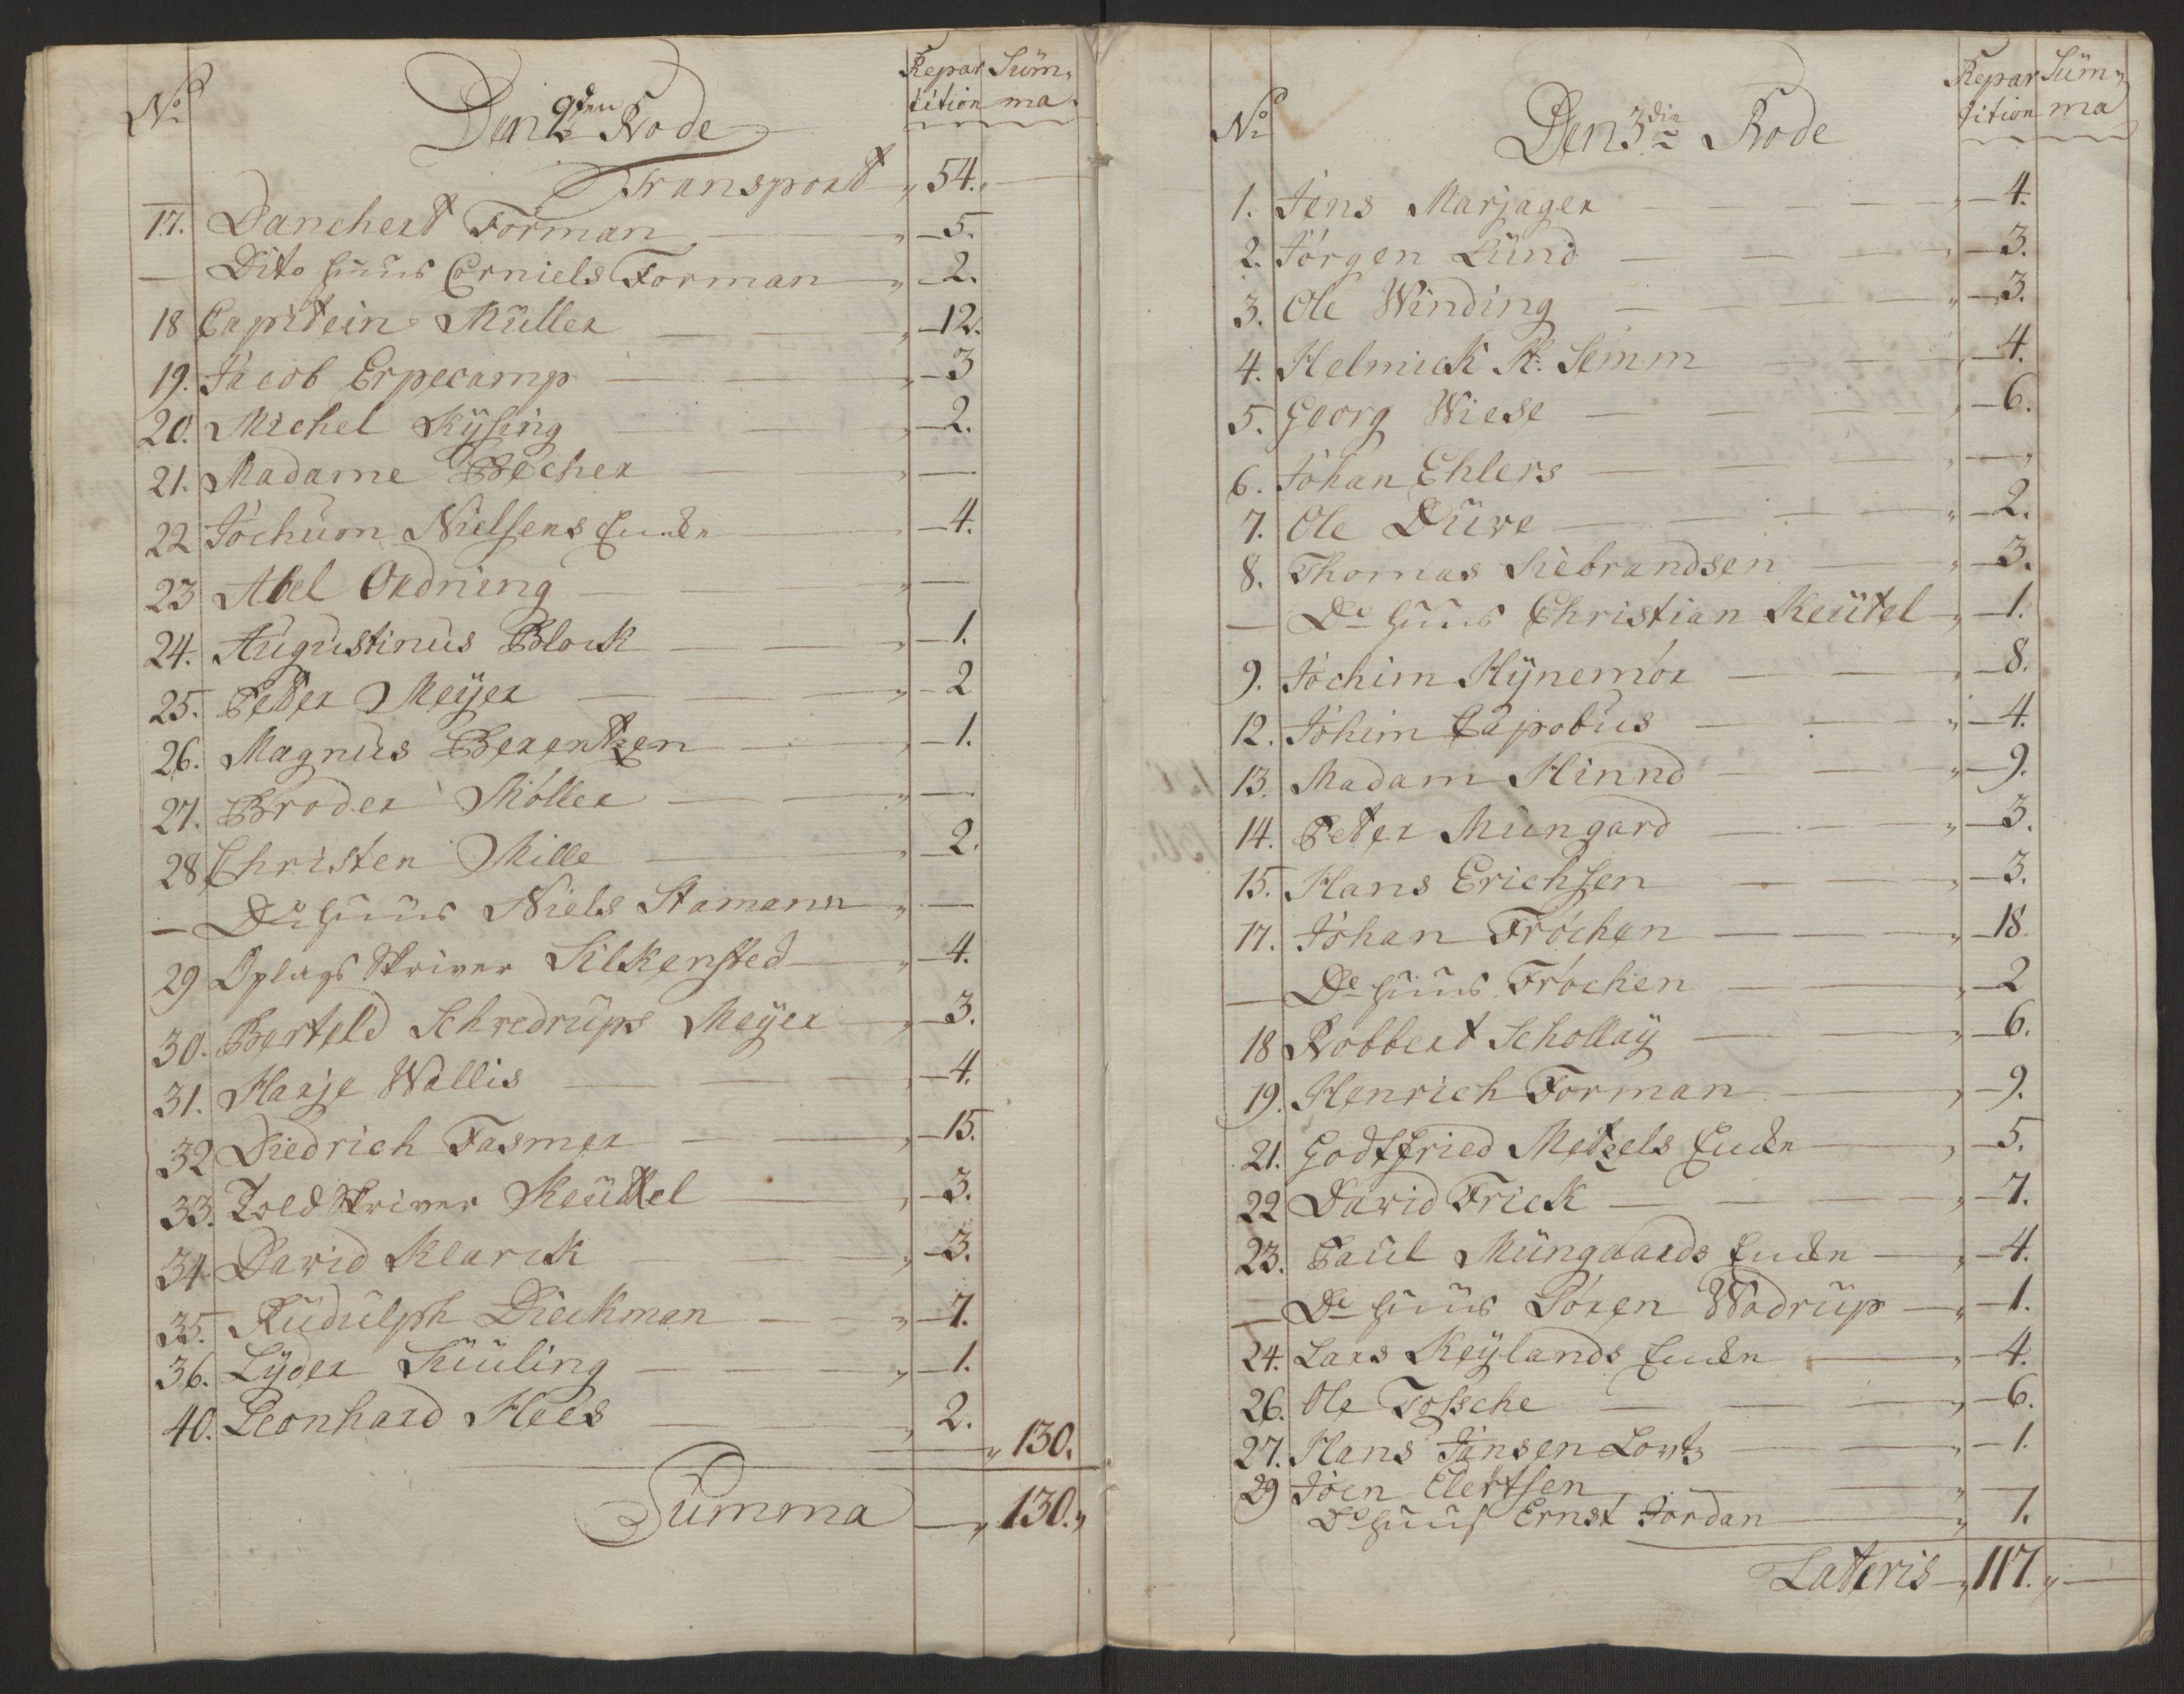 No Den 2den Rode Repar Süm„
tition ma
Transport „ 54. „ —
17. Danchert Forman — „ — 5.
— Dito huus Corniels Forman — „ — 2.
18 Capitein Müller — „ — 12.
19. Jacob Erpecamp — „ — 3
20. Michel Kÿsing — „ — 2.
21. Madame Becher — „ —
22 Jöchüm Nielsens Encke — „ — 4.
23 Abel Ordning — „ —
24. Augustinus Block — „ — 1.
25. Peter Meÿer — „ — 2
26. Magnus Berentzen — „ — 1.
27. Broder Möller — „ —
28 Christen Mille — „ — 2.
— Do huus Niels Stamann — „ —
29 Oplags Skriver Silkensted — „ — 4.
30. Berteld Schredrups Meÿer — „ — 3.
31. Harje Wallis — „ — 4.
32 Diedrich Fasmer — „ — 15.
33. Told Skriver Keüttel — „ — 3.
34 David Klarck — „ — 3.
35. Rudulph Dieckman — „ — 7.
36. Lÿder Süüling — „ — 1.
40. Leonhard Hees — „ 2.
— „ 130.
Summa — „ 130. „
No Den 3die Rode Repar Süm„
tition ma
1. Jens Marjager — „ — 4.
2. Jörgen Lund — „ — 3.
3. Ole Winding — „ — 3.
4. Helmick St: Semm — „ — 4.
5. Georg Wiese — „ — 6.
6. Johan Ehlers — „ — „
7. Ole Düve — „ — 2.
8. Thomas Siebrandsen — „ — 3.
— Do huus Christian Keütel — „ — 1.
9. Jochim Hÿnemör — „ — 8.
12. Johim Capobus — „ — 4.
13. Madam Hinnd — „ — 9.
14. Peter Mungard — „ — 3.
15. Hans Erichsen — „ — 3.
17. Johan Fröchen — „ — 18
— Do huus Fröchen — „ — 2
18 Robbert Schollaÿ — „ — 6.
19. Henrich Forman — „ — 9.
21. Godtfried Metzels Encke — „ — 5.
22 David Frick — „ — 7.
23. Paul Mungaards Encke — „ — 4.
— Do huus Sören Wodrup — „ — 1.
24. Lars Keÿlands Encke — „ — 4.
26. Ole Tossche — „ — 6.
27. Hans Jansen Lowtz — „ — 1.
29 Joen Elertsen — „ —
Do huus Ernst Jordan — „ 1.
Lateris — „ 117. „ —